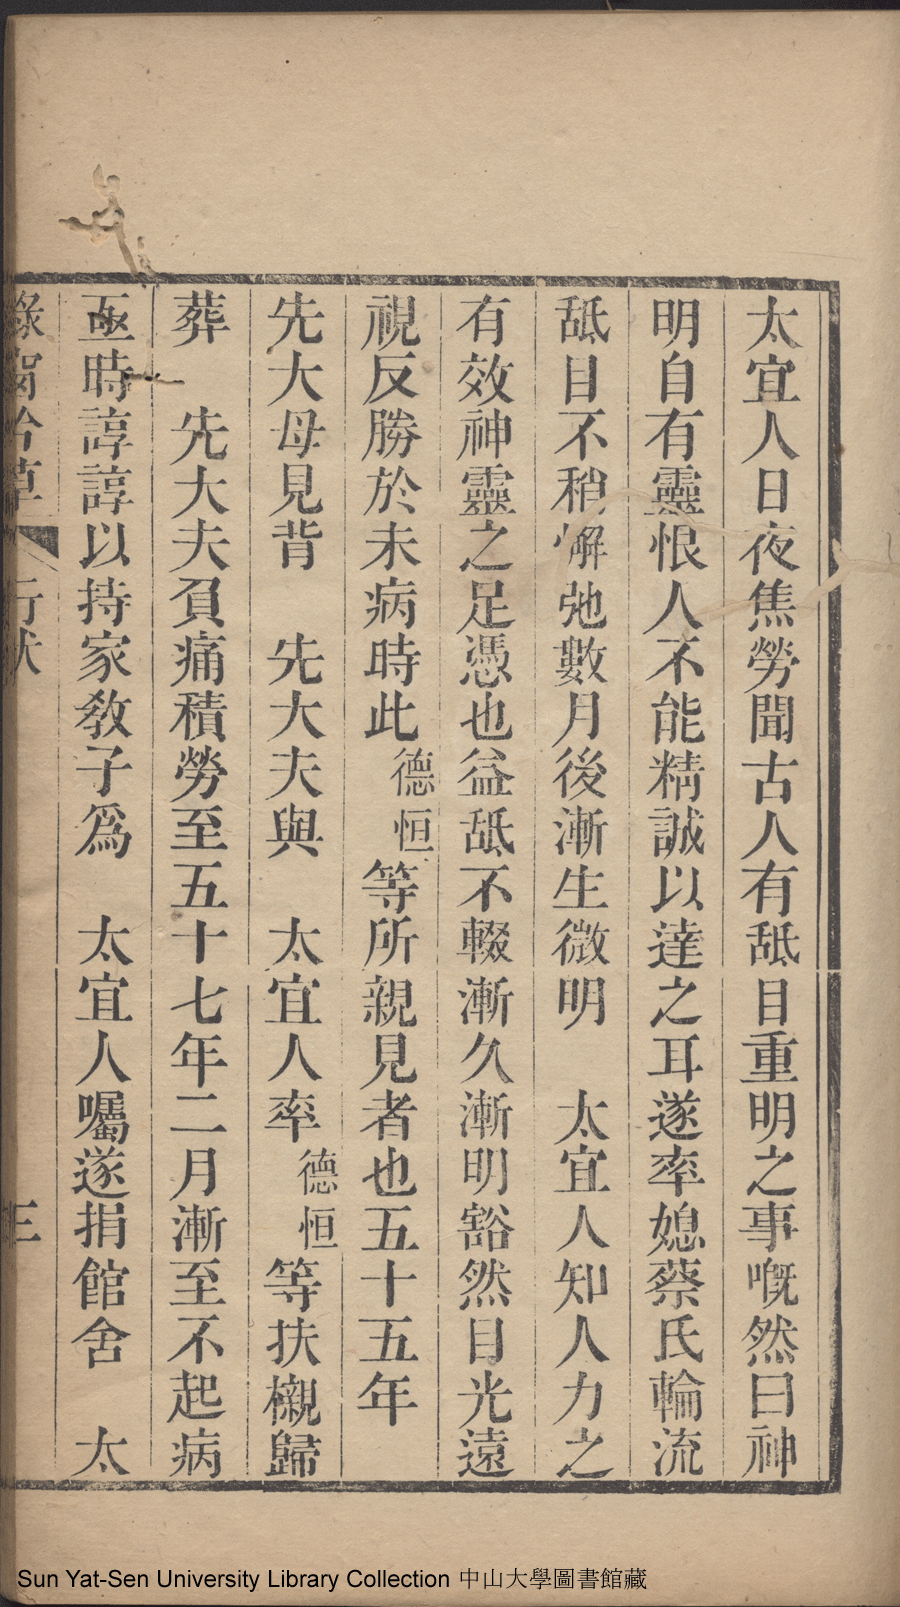 太宜人日夜焦勞聞古人有舐目重明之事嘅然曰神
明自有靈恨人不能精誠以達之耳遂率媳蔡氏輪流
舐目不稍懈弛數月後漸生微明　太宜人知人力之
有效神靈之足憑也益舐不輟漸久漸明豁然目光遠
視反勝於未病時此德恒等所親見者也五十五年
先大母見背　先大夫與　太宜人率德恒等扶櫬歸
葬　先大夫負痛積勞至五十七年二月漸至不起病
亟時諄諄以持家敎子爲　太宜人囑遂捐館舍　太
吟草　行狀　三
Sun Yat-Sen University Library Collection 中山大學圖書館藏